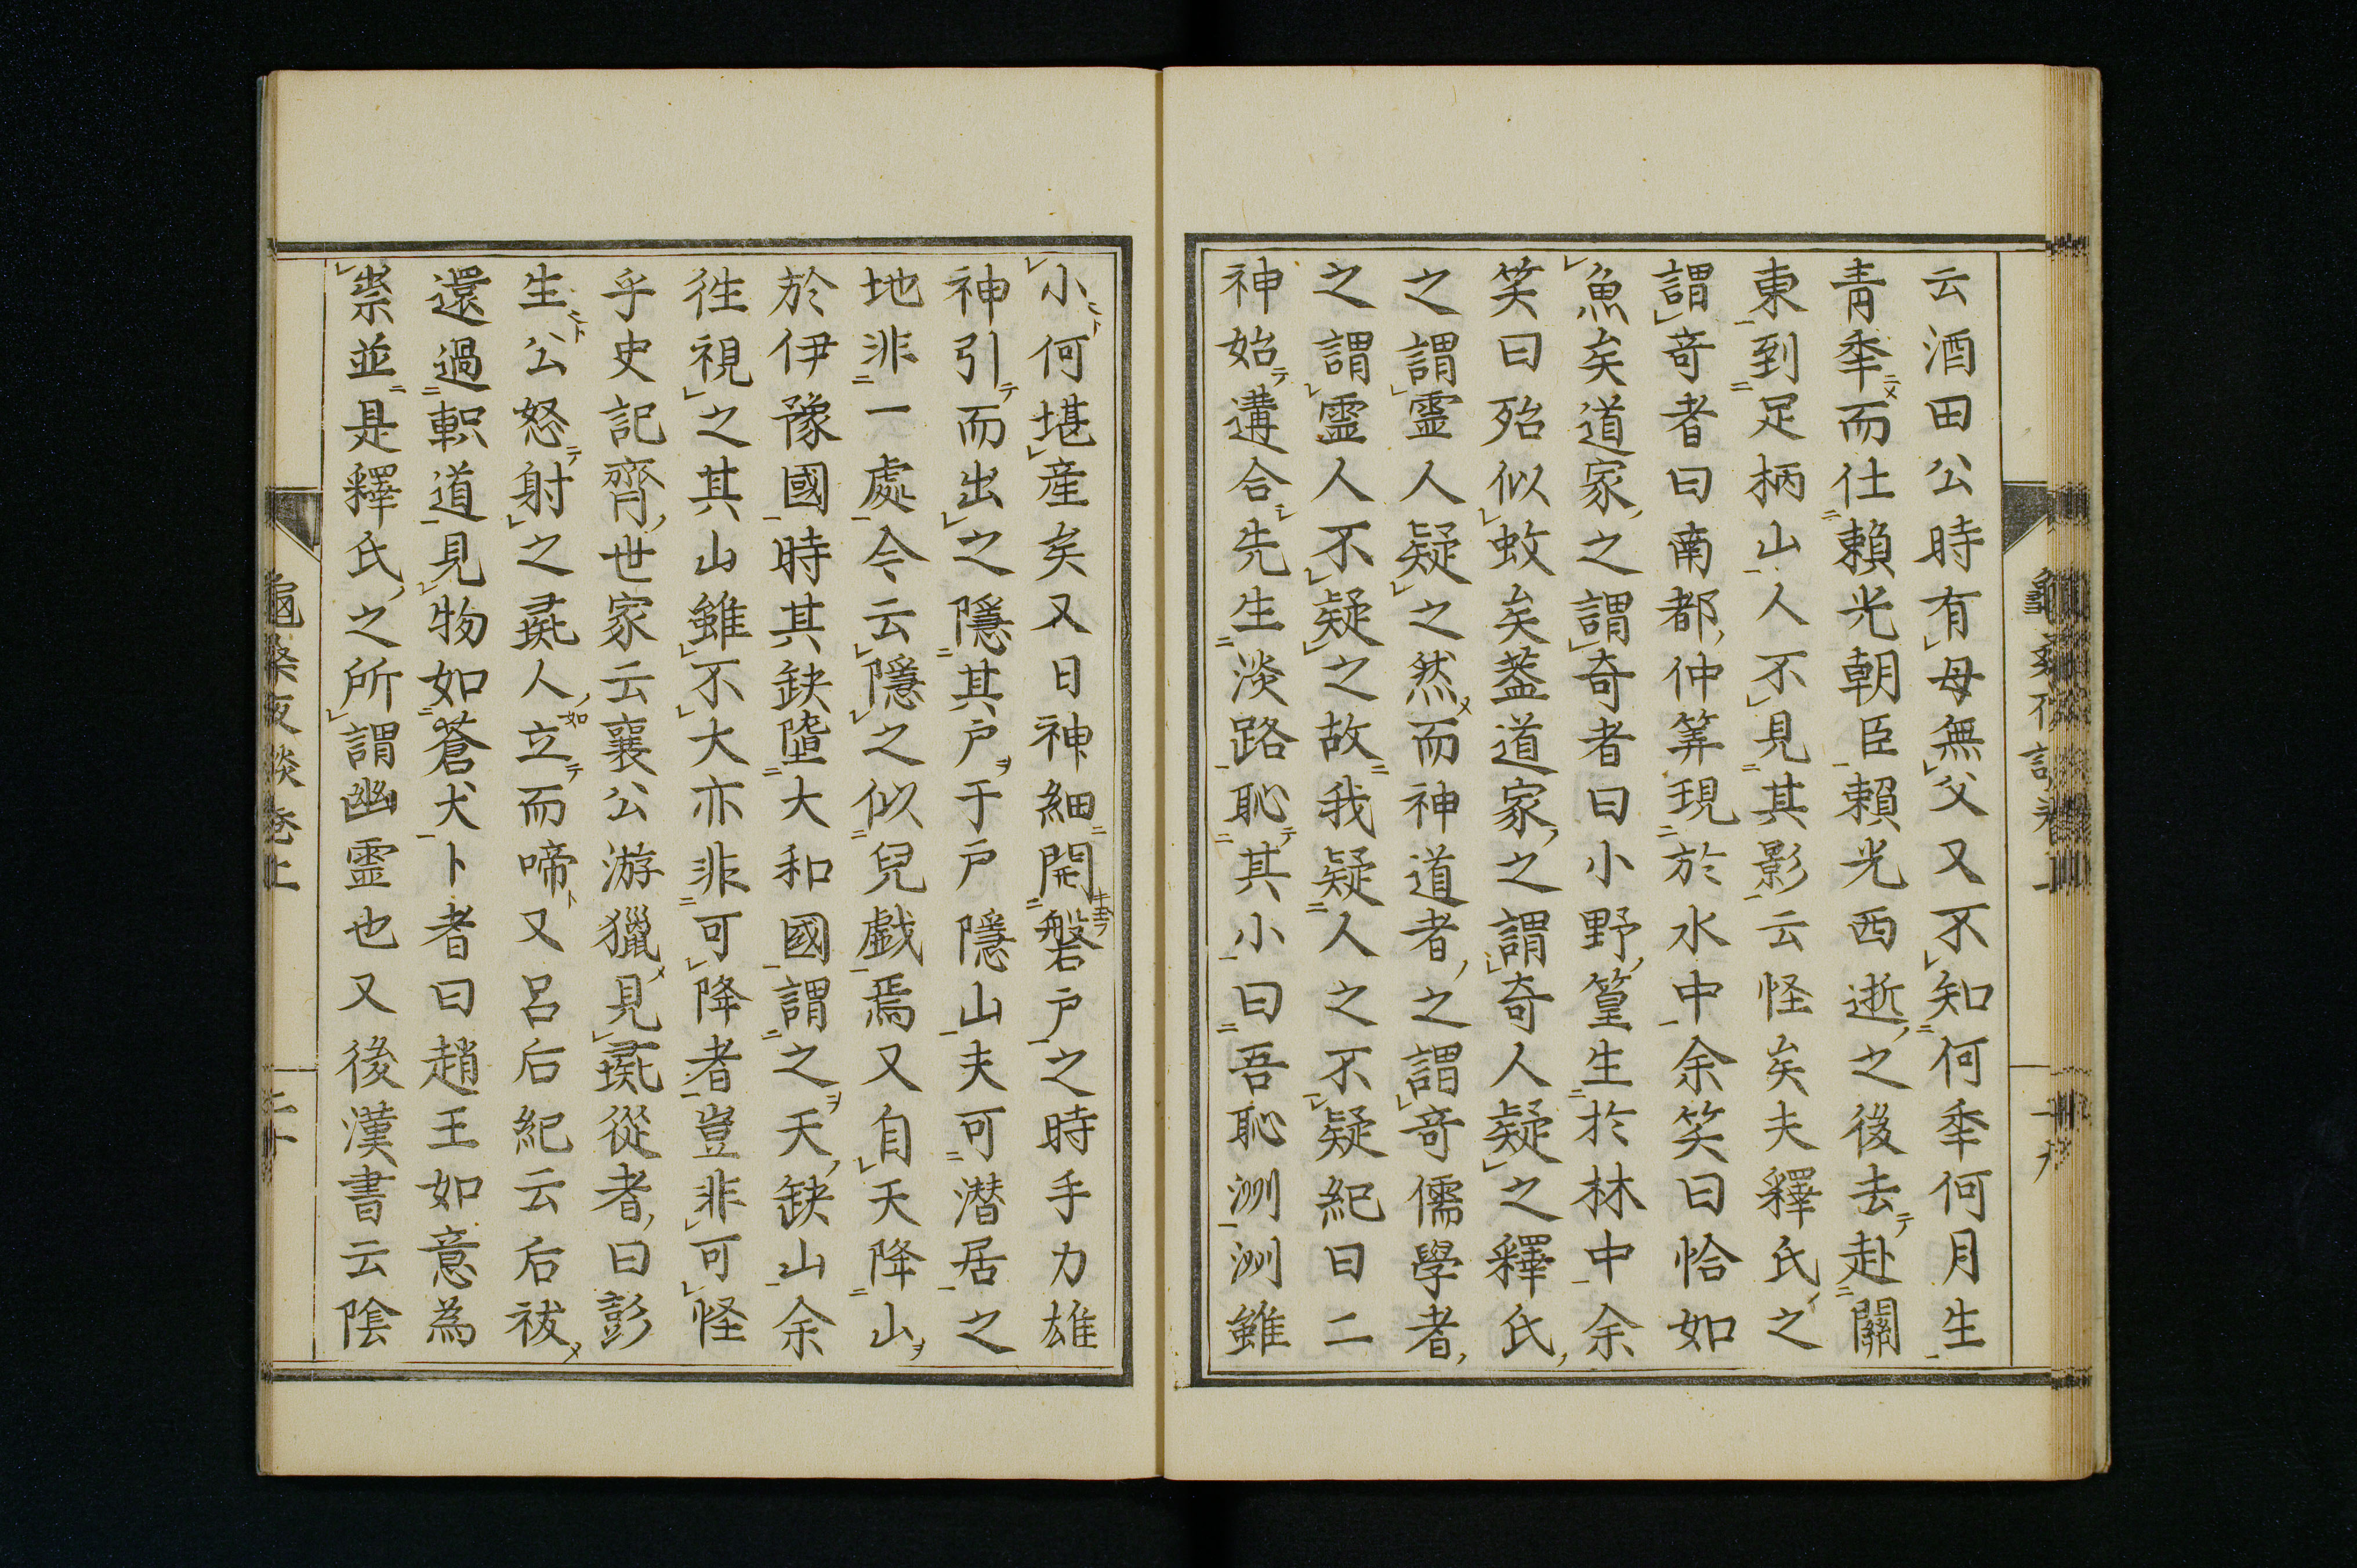 云酒田公時有母無父又不知何秊何月生
青秊而仕賴光朝臣賴光西逝之後去赴關
東到足柄山人不見其影云怪矣夫釋氏之
謂竒者曰南都仲筭現於水中余笑曰恰如
魚矣道家之謂奇者曰小野篁生於林中余
笑曰殆似蚊矣蓋道家之謂奇人疑之釋氏
之謂靈人疑之然而神道者之謂竒儒學者
之謂靈人不疑之故我疑人之不疑紀曰二
神始遘合先生淡路恥其小曰吾恥洲洲雖
小何堪産矣又曰神細開磐戸之時手力雄
神引而出之隱其戸于戸隱山夫可潛居之
地非一處今云隱之似兒戯焉又自天降山
於伊豫國時其缺墮大和國謂之天缺山余
徃視之其山雖不大亦非可降者豈非可怪
乎史記齊世家云襄公游獵見彘從者曰彭
生公怒射之彘人立而啼又呂后紀云后祓
還過軹道見物如蒼犬卜者曰趙王如意為
祟並是釋氏之所謂幽靈也又後漢書云陰
卷上